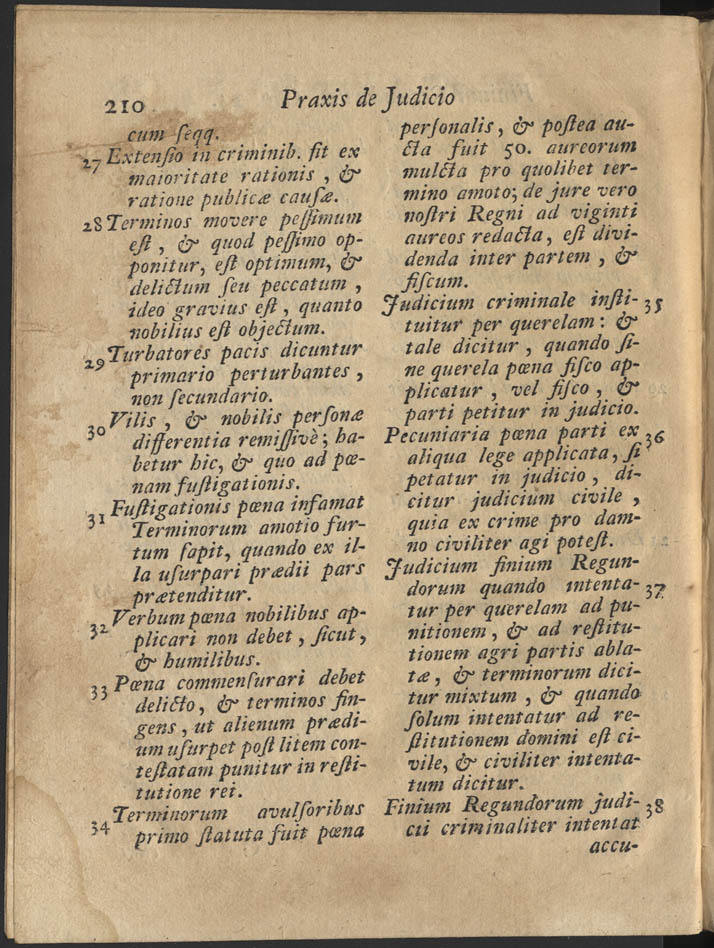 210 Praxis de Judicio
cum ſeqq.
27 Extenſio in criminib. fit ex
maioritate rationis , &
ratione publicæ cauſæ.
28 Terminos movere peſſimum
eſt , & quod peſſimo op-
ponitur, eſt optimum, &
delictum ſeu peccatum ,
ideo gravius eſt , quanto
nobilius eſt objectum.
29 Turbatores pacis dicuntur
primario perturbantes ,
non ſecundario.
30 Vilis , & nobilis perſonæ
differentia remiſſivè; ha-
betur hic, & quo ad pœ-
nam fuſtigationis.
31 Fuſtigationis pœna infamat
Terminorum amotio fur-
tum ſapit, quando ex il-
la uſurpari prædii pars
prætenditur.
32 Verbum pœna nobilibus ap-
plicari non debet , ſicut,
& humilibus.
33 Pœna commenſurari debet
delicto, & terminos fin-
gens , ut alienum prædi-
um uſurpet poſt litem con-
teſtatam punitur in reſti-
tutione rei.
34 Terminorum avulſoribus
primo ſtatuta fuit pœna
perſonalis , & poſtea au-
cta fuit 50. aureorum
mulcta pro quolibet ter-
mino amoto; de jure vero
noſtri Regni ad viginti
aureos redacta, eſt divi-
denda inter partem , &
fiſcum.
Judicium criminale inſti- 35
tuitur per querelam : &
tale dicitur , quando ſi-
ne querela pœna fiſco ap-
plicatur , vel fiſco , &
parti petitur in judicio.
Pecuniaria pœna parti ex 36
aliqua lege applicata, ſi
petatur in judicio , di-
citur judicium civile ,
quia ex crime pro dam-
no civiliter agi poteſt.
Judicium finium Regun-
dorum quando intenta- 37
tur per querelam ad pu-
nitionem , & ad reſtitu-
tionem agri partis abla-
tæ , & terminorum dici-
tur mixtum , & quando
ſolum intentatur ad re-
ſtitutionem domini eſt ci-
vile, & civiliter intenta-
tum dicitur.
Finium Regundorum judi- 38
cii criminaliter intentat
accu-